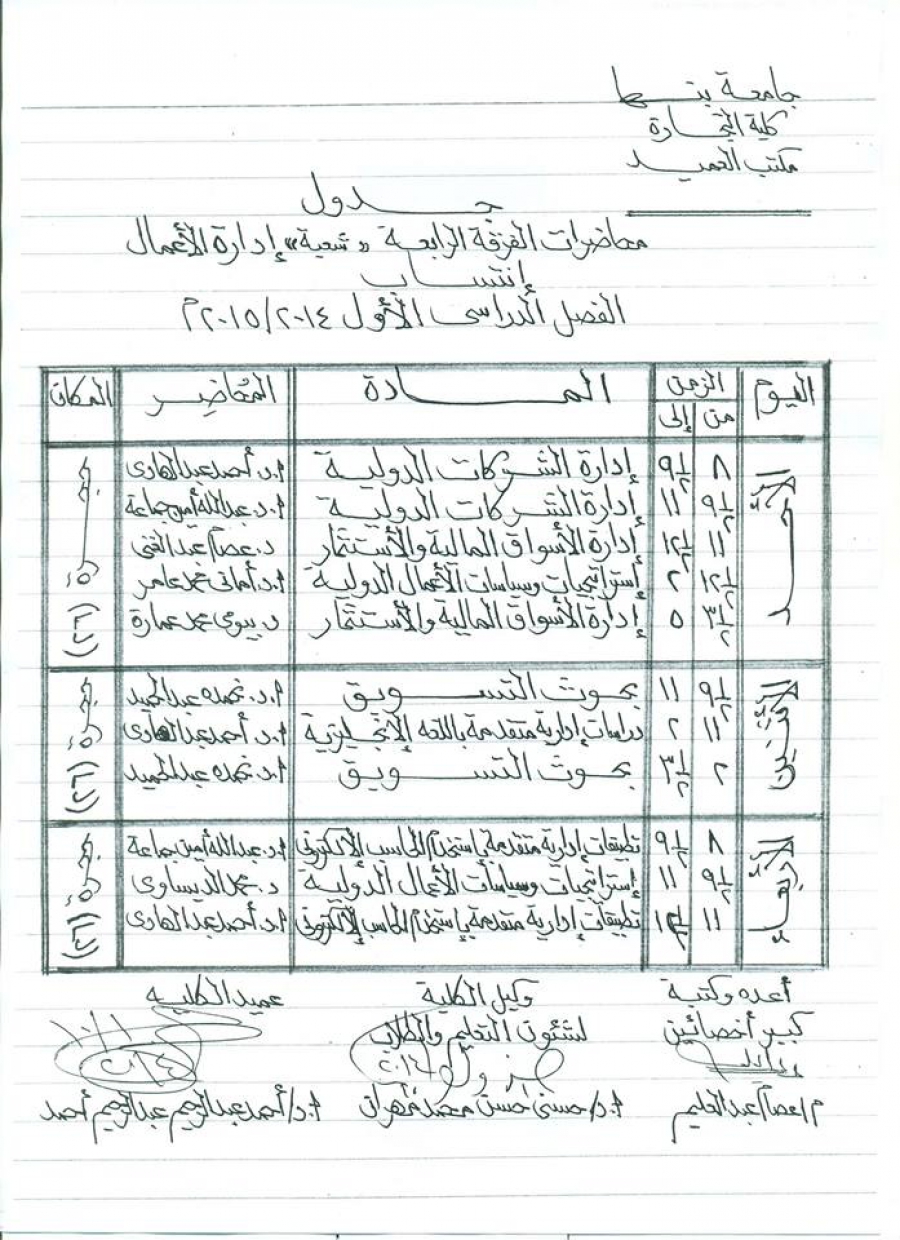 جامعة بنها
كلية التجارة
مكتب العميد
جدول
محاضرات الفرقة الرابعة "شعبة" إدارة الأعمال
إنتساب
الفصل الدراسى الأول ٢٠١٤/٢٠١٥م
اليوم الزمن المادة المُحاضِر المكان
من إلى
الأحد ٨ ٩½ إدارة الشركات الدولية أ.د. أحمد عبد الهادى مدرج
٩½ ١١ إدارة الشركات الدولية أ.د. عبدالله أمين جماعة
١١ ١٢½ إدارة الأسواق المالية والأستثمار د. عصام عبد الغنى
١٢½ ٢ إستراتيجيات وسياسات الأعمال الدولية أ.د. أمانى محمد عامر
٣½ ٥ إدارة الأسواق المالية والأستثمار د. بيومى محمد عمارة
الأثنين ٩½ ١١ بحوث التسويق أ.د. نجده عبدالحميد مدرج
١١ ٢ دراسات إدارية متقدمة باللغه الإنجليزية أ.د. أحمد عبد الهادى
٢ ٣½ بحوث التسويق أ.د. نجده عبدالحميد
الأربعاء ٨ ٩½ تطبيقات إدارية متقدمة بإستخدام الحاسب الإلكترونى أ.د. عبدالله أمين جماعة مدرج
٩½ ١١ إستراتيجيات وسياسات الأعمال الدولية د. محمد الديساوى
١١ ١٢½ تطبيقات إدارية متقدمة بإستخدام الحاسب الإلكترونى أ.د. أحمد عبد الهادى
أعده وكتبة وكيل الكلية عميد الكلية
كبير أخصائين لشئون التعليم والطلاب
٢٠١٤
م/عصام عبد العليم أ.د/ حسنى حسن محمد مهران أ.د/ أحمد عبد الرحيم عبد الرحيم أحمد